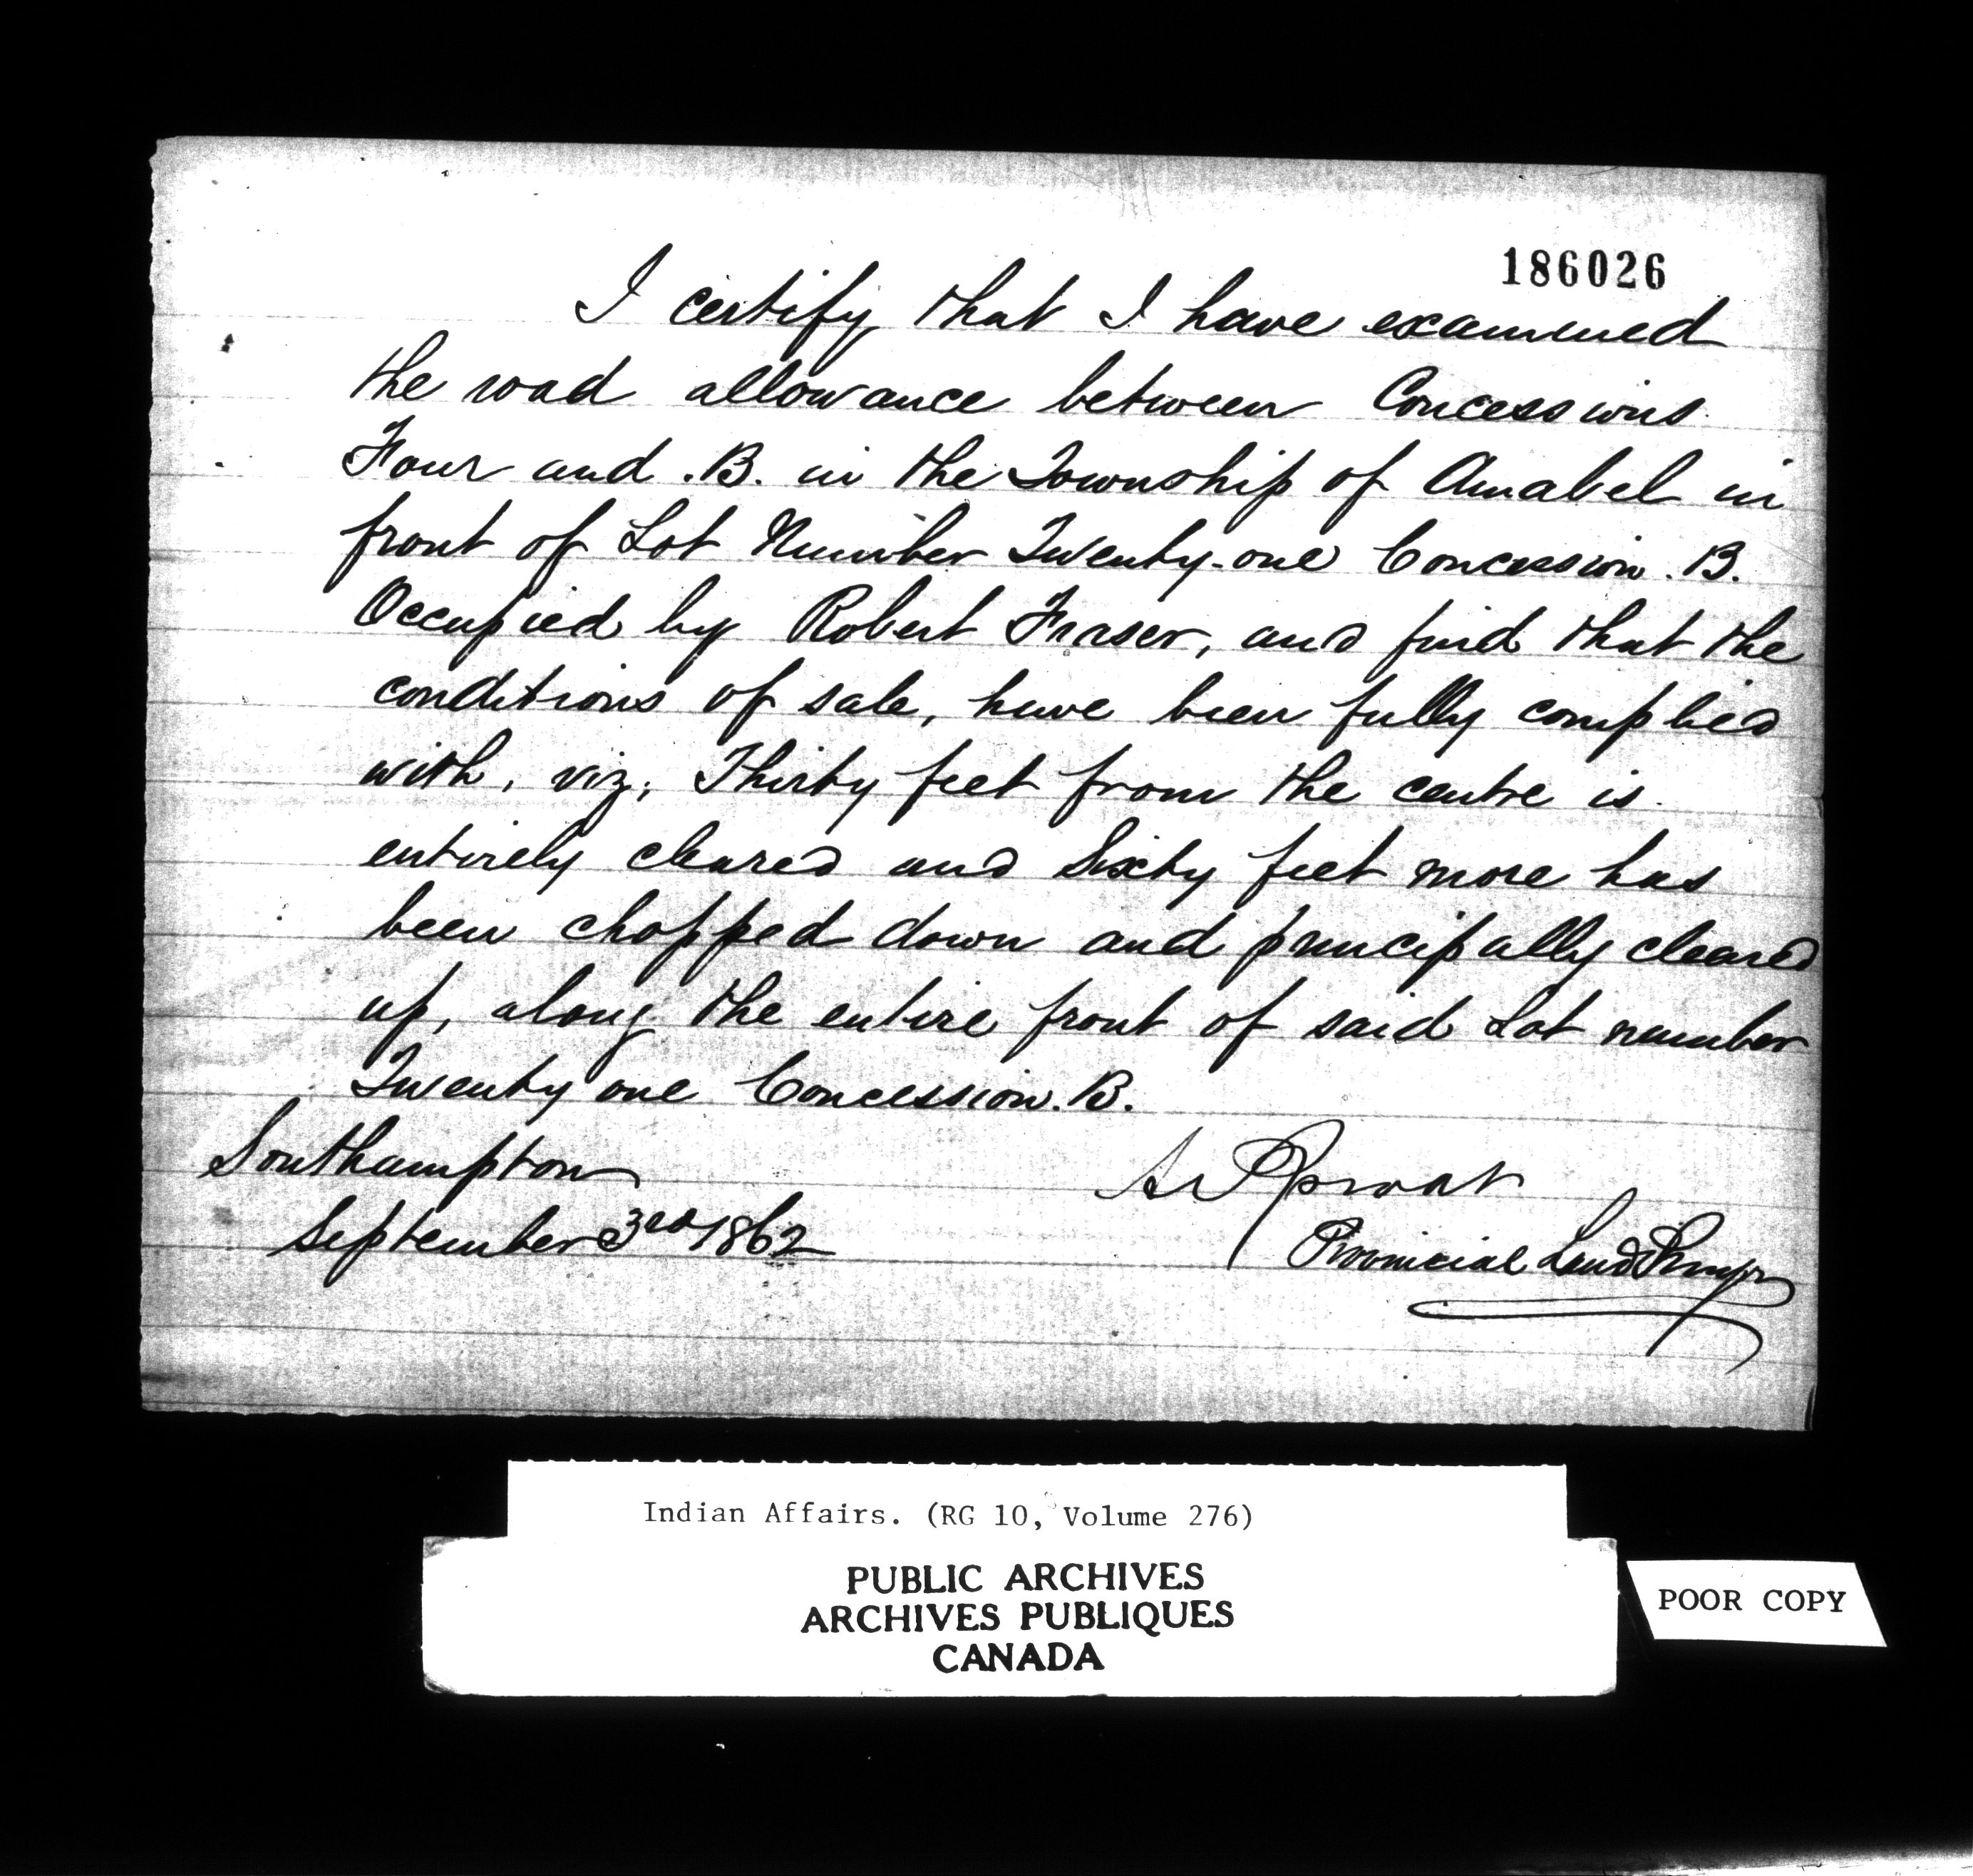 186026
I certify that I have examined
the road allowance between Concessions
Four and .B. in the Township of Amabel in
front of Lot Number Twenty-one Concession. B.
Occupied by Robert Fraser, and find that the
conditions of sale, have been fully complied
with, viz; Thirty feet from the centre is
entirely cleared and Sixty feet more has
been chopped down and principally cleared
up, along the entire front of said Lot number
Twenty one Concession. B.
Southampton
September 3rd 1862
A Sproat
Provincial Land Surveyor
Indian Affairs. (RG 10, Volume 276)
PUBLIC ARCHIVES
ARCHIVES PUBLIQUES
CANADA
POOR COPY